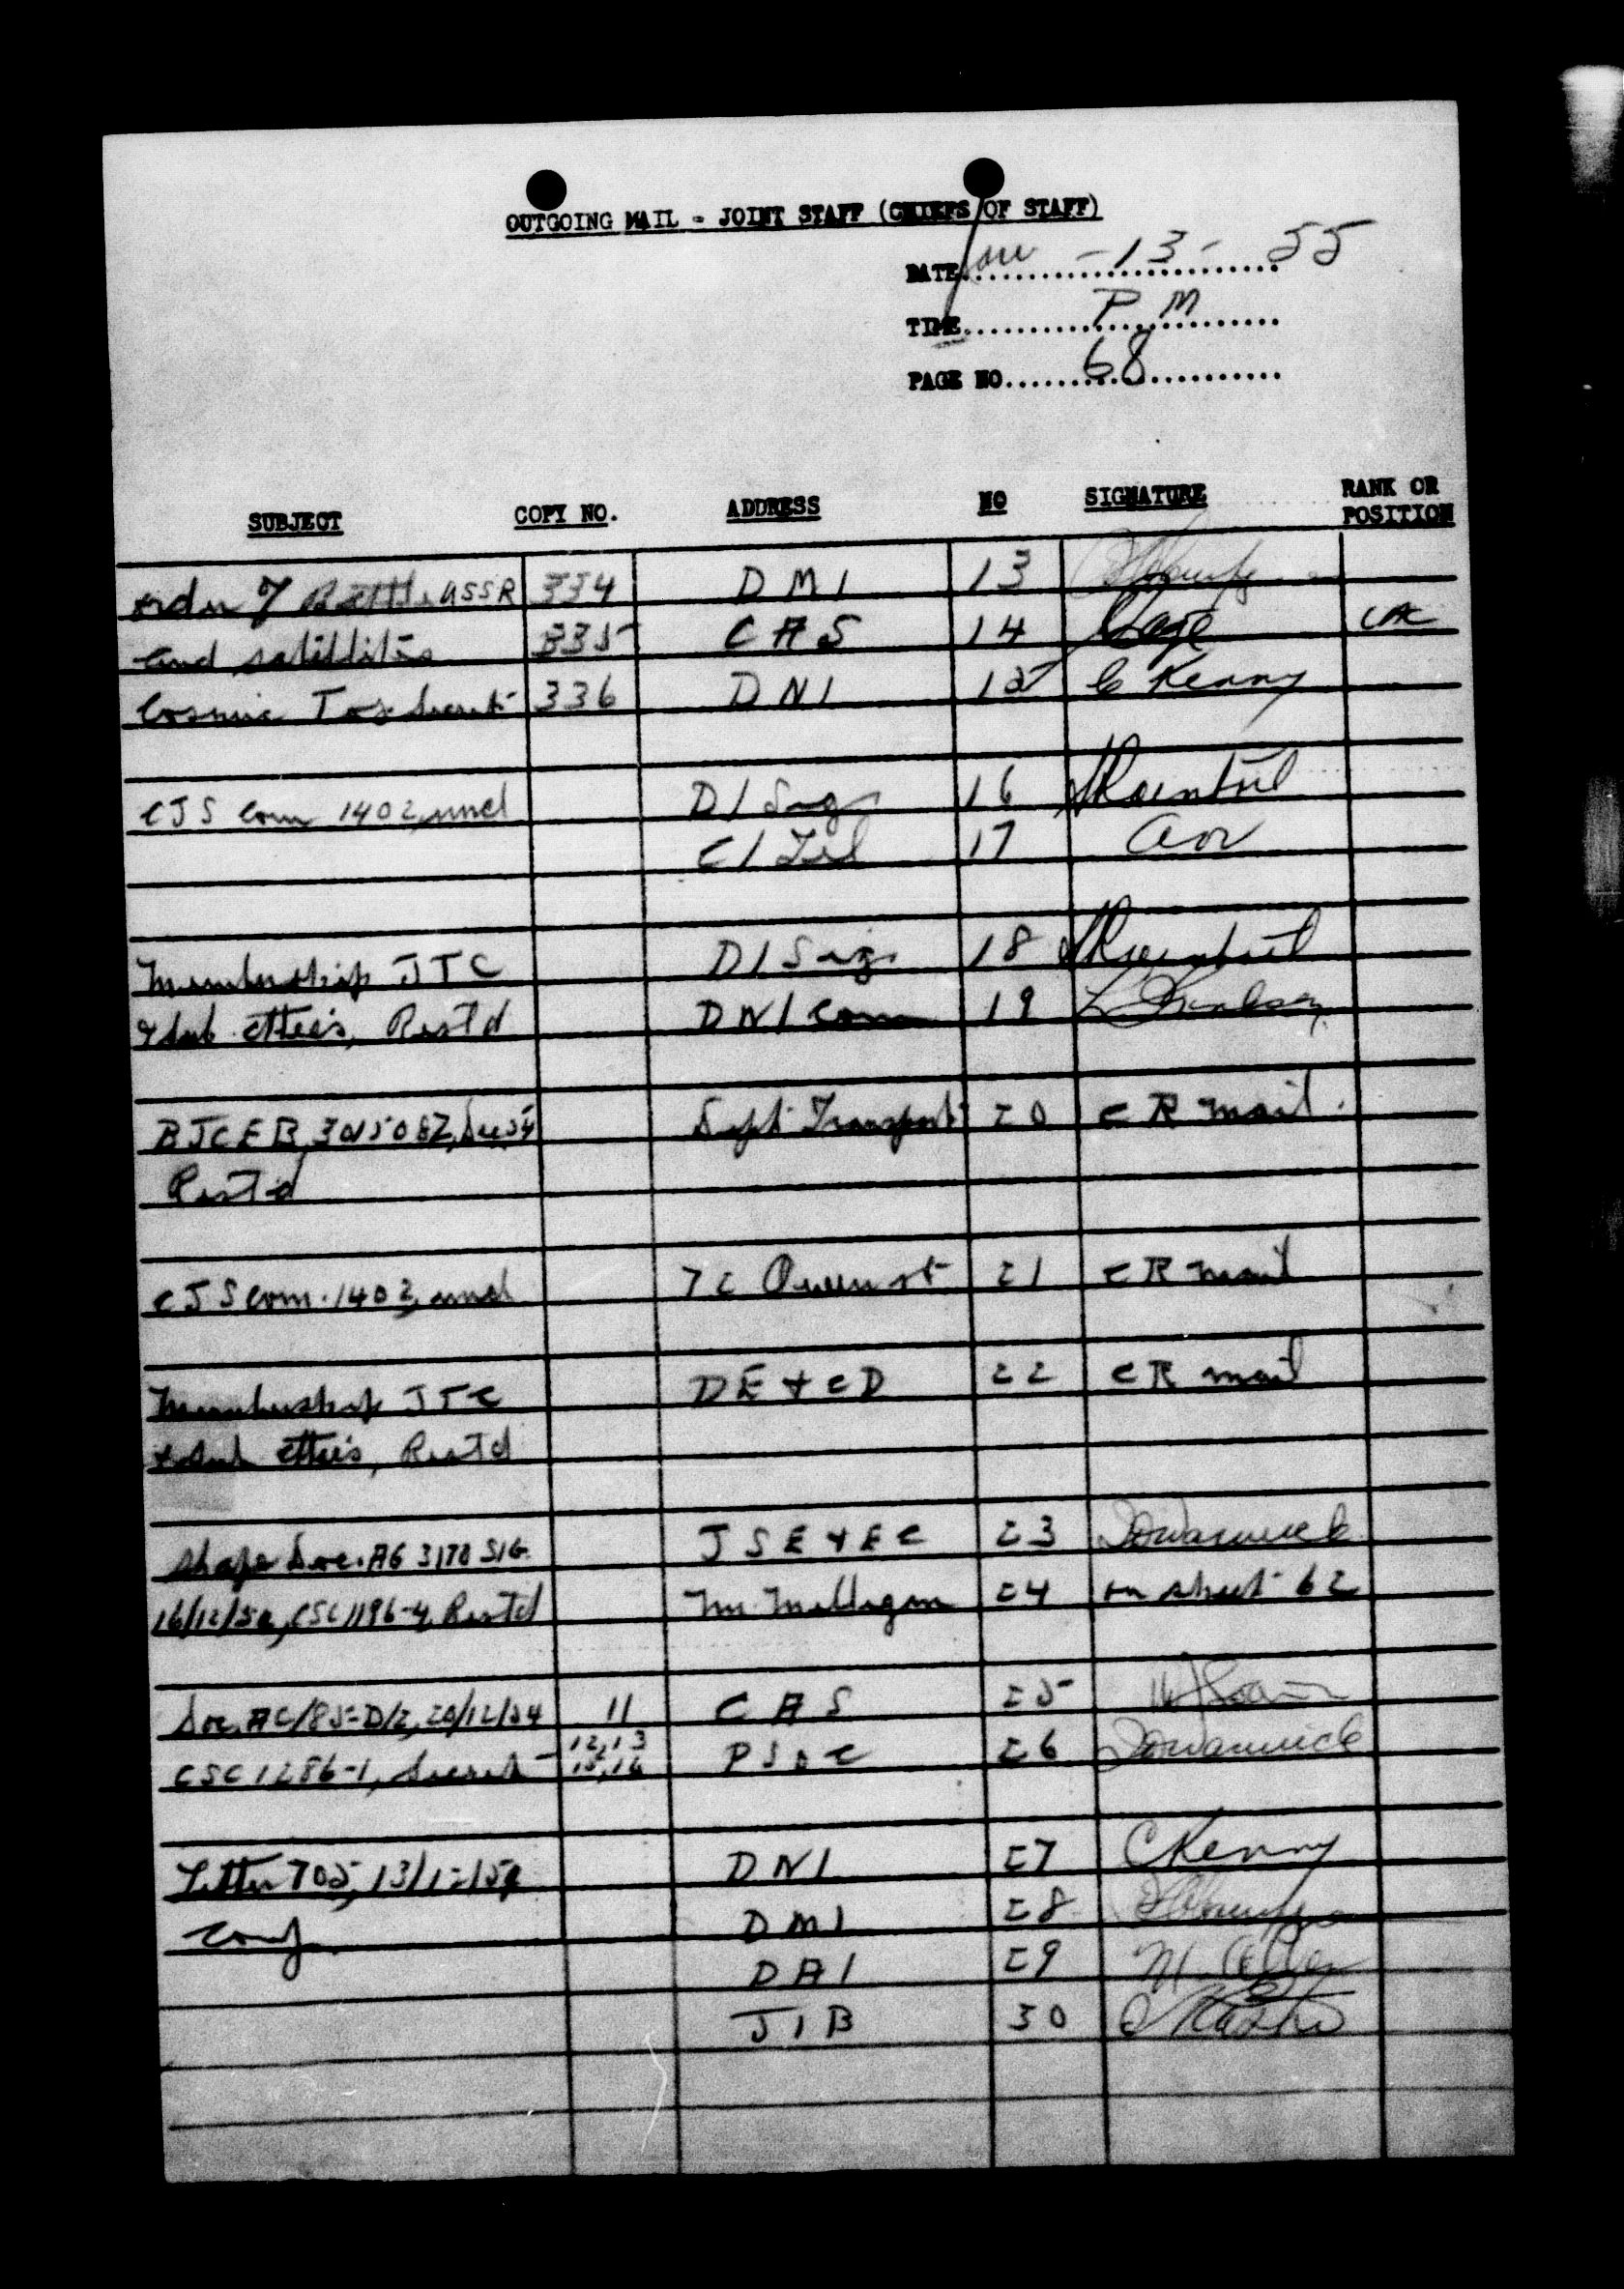 OUTGOING MAIL - JOINT STAFF (CHIEFS OF STAFF)
DATE Jan - 13 - 55
TIME P M
PAGE NO 68
SUBJECT COPY NO. ADDRESS NO SIGNATURE RANK OR POSITION
Order of Battle USSR 334 DMI 13
and satellites 335 CAS 14 Gage LAC
Cosmic Top Secret 336 DNI 15 C Kenny
CJS Com 1402, uncl D/Sigs 16
C/Tel 17
Membership JTC D/Sigs 18
& Sub cttee's, Rest'd DN/Com 19
BJCEB 301508Z, Dec 54 Dept Transport 20 CR mail.
Rest'd
CJS Com. 1402, uncl 7C Queen st 21 CR mail
Membership JTC DE & CD 22 CR mail
& Sub cttee's, Rest'd
Shape Doc. AG 3170 SIG JSE & EC 23
16/12/54, CSC 1196-4, Rest'd Mr. Milligan 24 on sheet 62
Doc. AC/85-D/2, 20/12/54 11 CAS 25
CSC 1286-1, Secret 12,13 15,16 PSDC 26
Letter 705, 13/12/54 DNI 27 C Kenny
Conf DMI 28
DAI 29
JIB 30